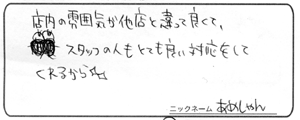 店内の雰囲気が他店と違って良くて、
スタッフの人もとても良い対応をして
くれるから☆
ニックネーム あめしゃん